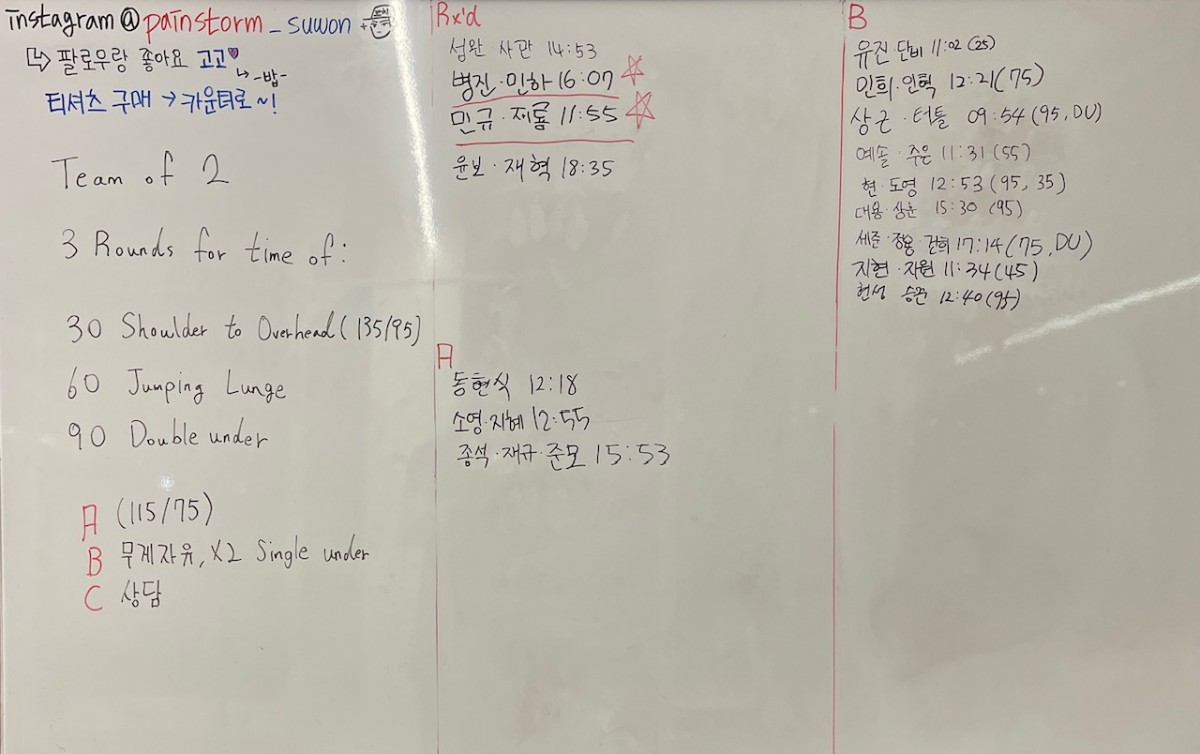 instagram@painstorm_suwon +
팔로우랑 좋아요 고고
-밥-
티셔츠 구매 → 카운터로~!
Team of 2
3 Rounds for time of:
30 Shoulder to Overhead (135/95)
60 Jumping Lunge
90 Double under
A (115/75)
B 무게자유, X2 Single under
C 상담
Rx'd
섬완 사관 14:53
병진·민하 16:07
민규·제롬 11:55
윤보·재혁 18:35
A
동현식 12:18
소영·지혜 12:55
종석·재규·준모 15:53
B
유진·단비 11:02 (25)
민희·인혁 12:21 (75)
상근·터틀 09:54 (95, DU)
예솔·주은 11:31 (55)
현·도영 12:53 (95, 35)
대용·상훈 15:30 (95)
세준·정용·건희 17:14 (75, DU)
지현·자원 11:34 (45)
헌성 승준 12:40 (95)